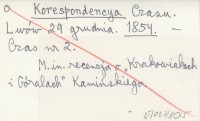 Korespondencya Czasu.
Lwów 29 grudnia. 1854. —
Czas nr 2.
M. in. recenzja o „Krakowiakach
i Góralach" Kamińskiego.